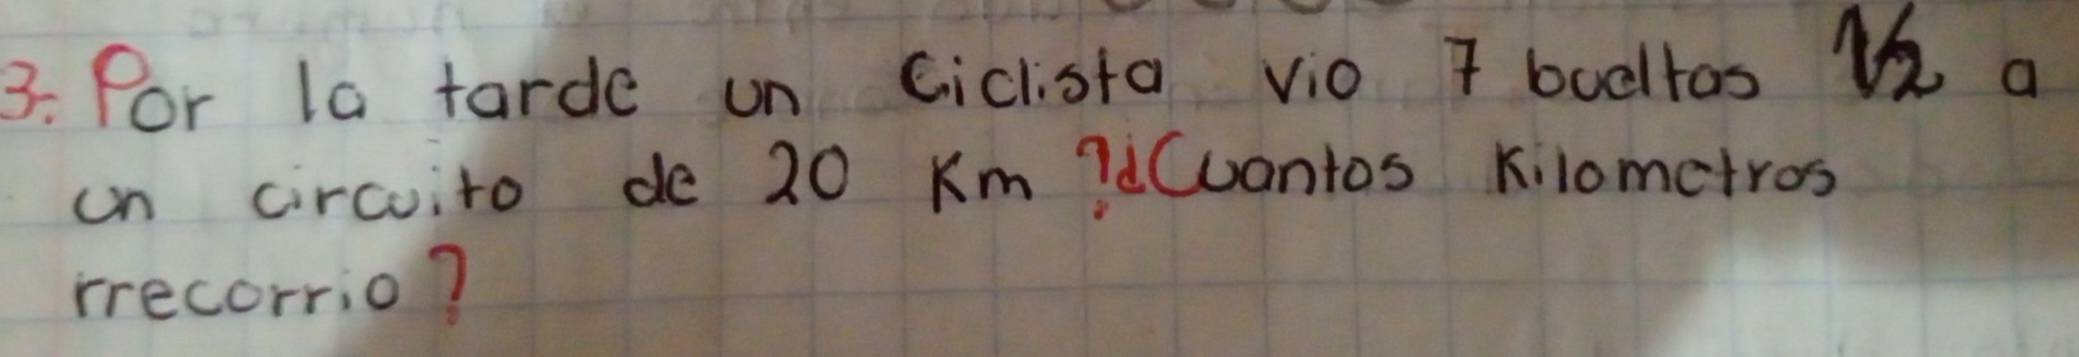 3. Por la tarde un Ciclista vio 7 bueltas 1/2 a
un circuito de 20 Km ?¿Cuantos Kilometros
rrecorrio?